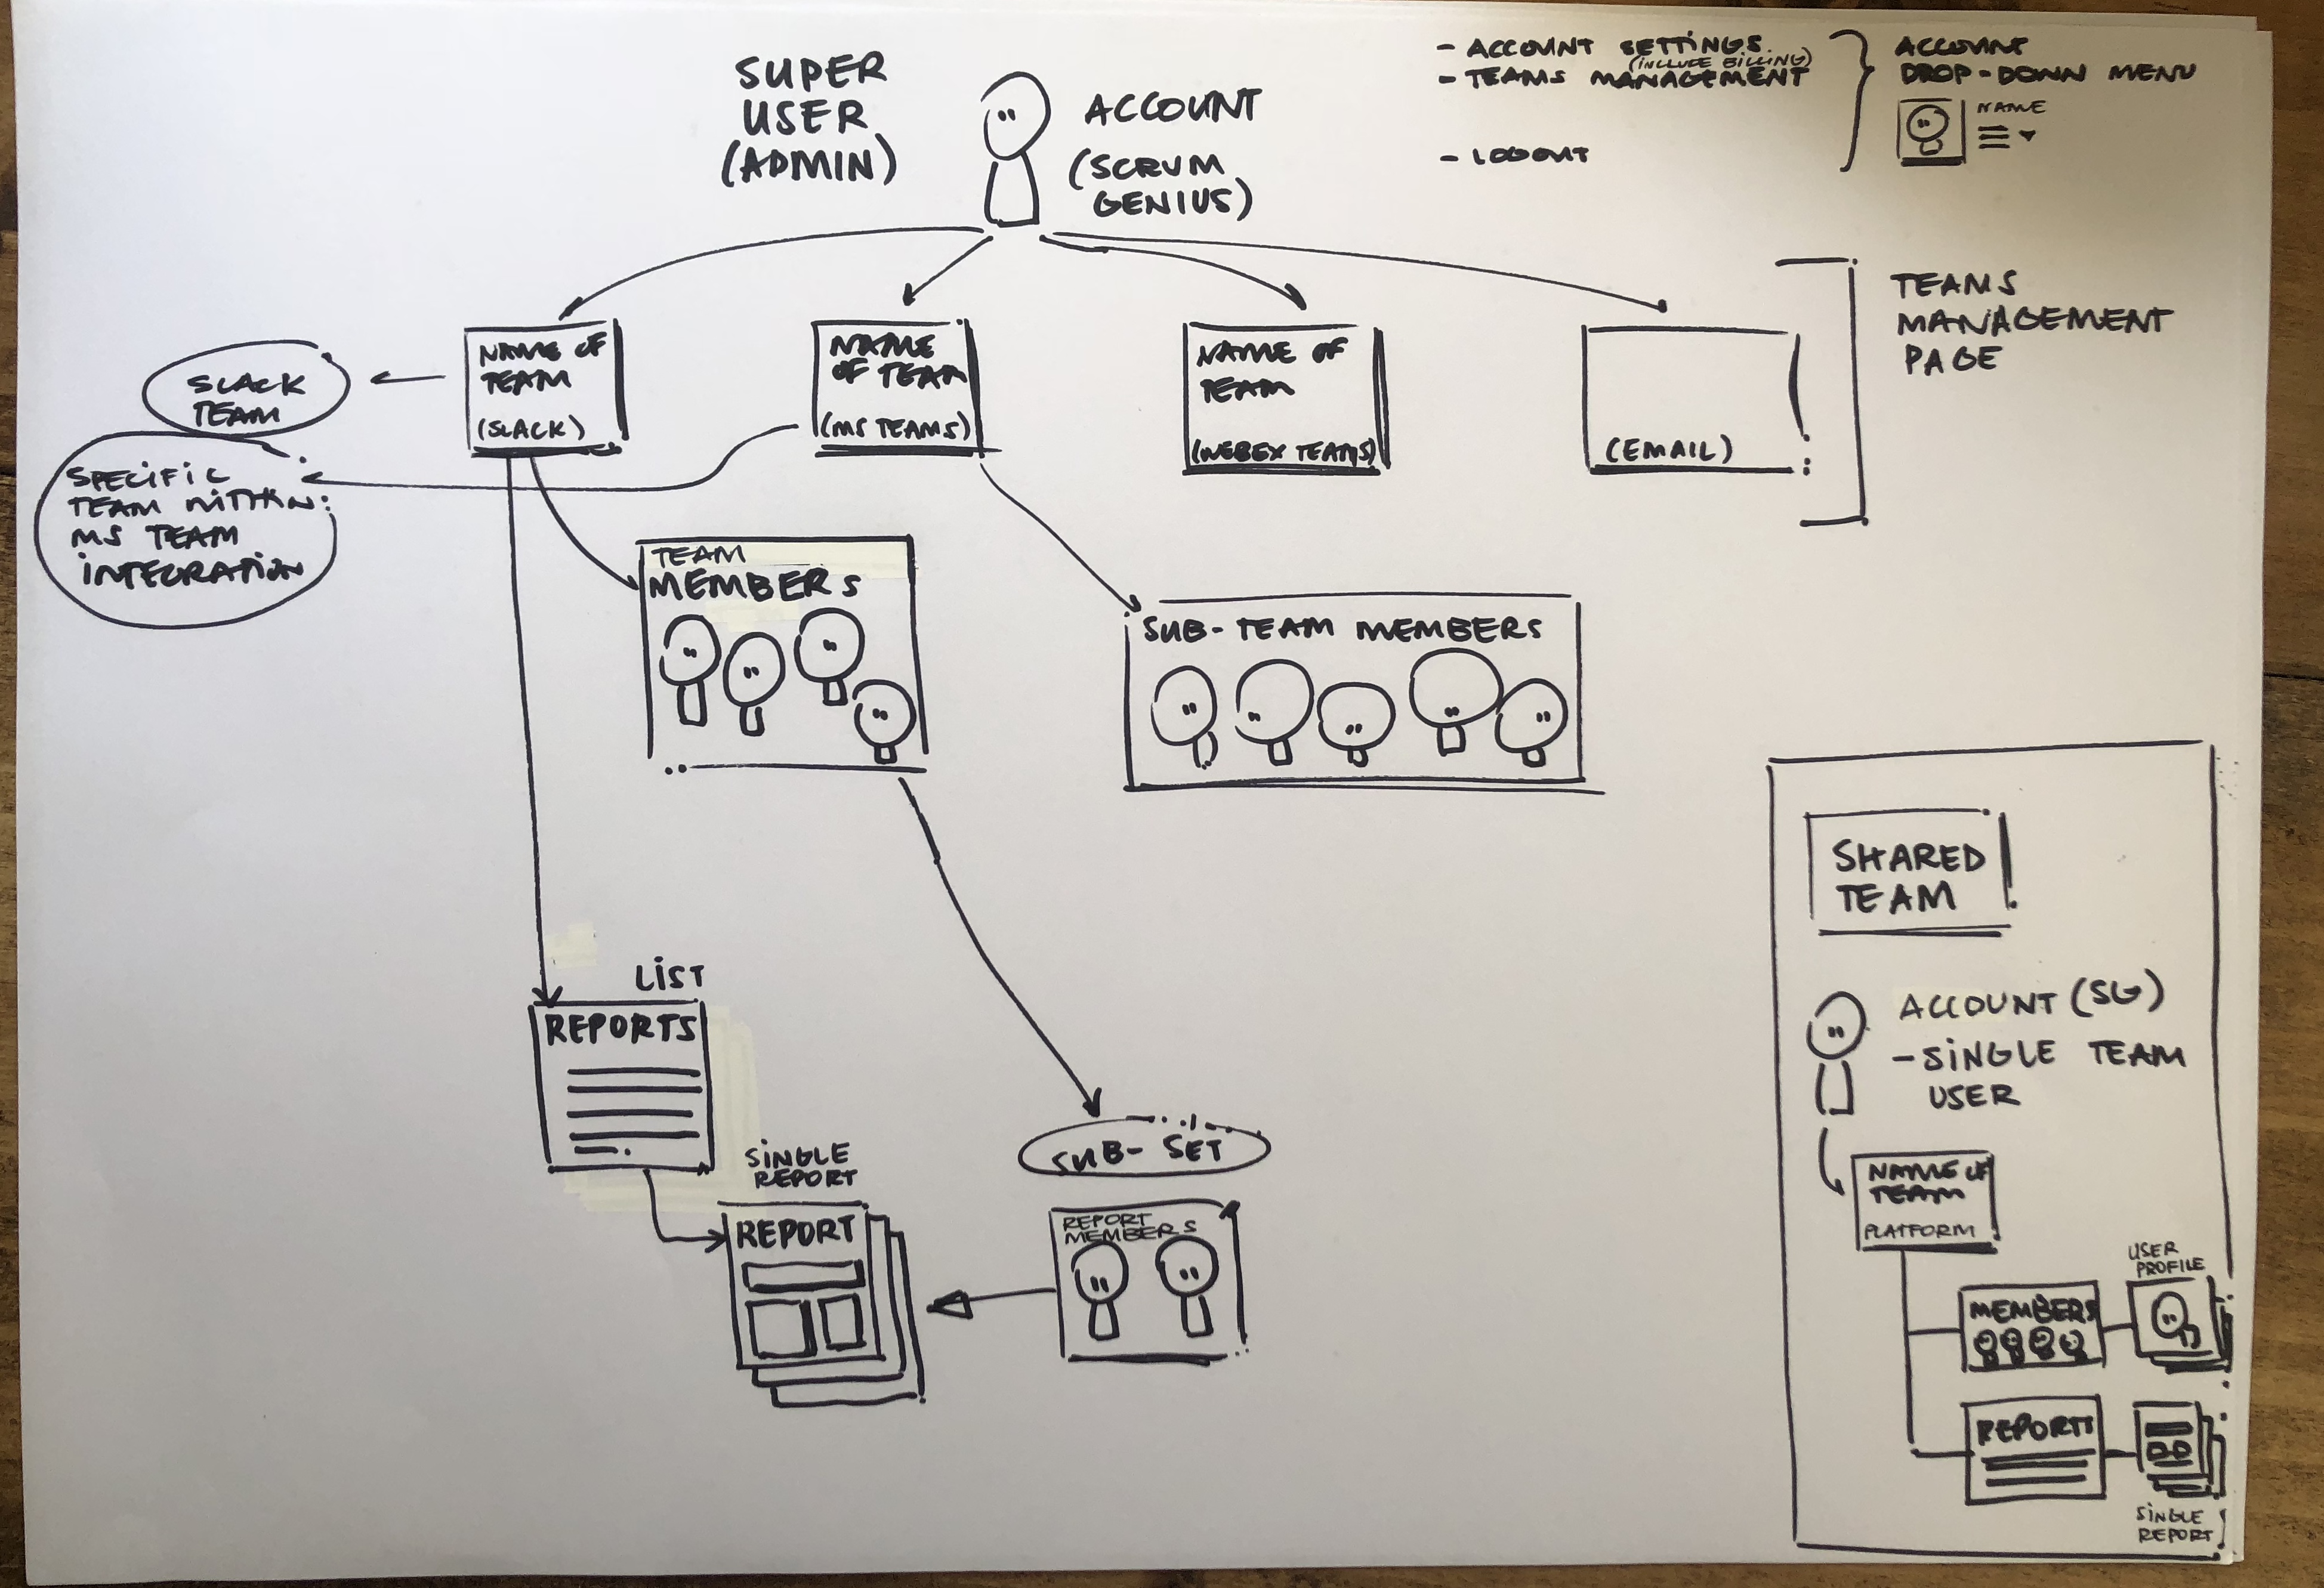 SUPER
USER
(ADMIN)
ACCOUNT
(SCRUM
GENIUS)
- ACCOUNT SETTINGS
(INCLUDE BILLING)
- TEAMS MANAGEMENT
- LOGOUT
ACCOUNT
DROP-DOWN MENU
NAME
TEAMS
MANAGEMENT
PAGE
SLACK
TEAM
NAME OF
TEAM
(SLACK)
NAME
OF TEAM
(MS TEAMS)
NAME OF
TEAM
(WEBEX TEAMS)
(EMAIL)
SPECIFIC
TEAM WITHIN
MS TEAM
INTEGRATION
TEAM
MEMBERS
SUB-TEAM MEMBERS
LIST
REPORTS
SINGLE
REPORT
REPORT
SUB-SET
REPORT
MEMBERS
SHARED
TEAM
ACCOUNT (SG)
- SINGLE TEAM
USER
NAME OF
TEAM
PLATFORM
USER
PROFILE
MEMBERS
REPORTS
SINGLE
REPORT